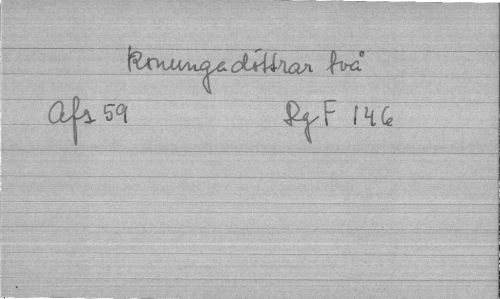 Konungadöttrar två
Afs 59 Rg F 146